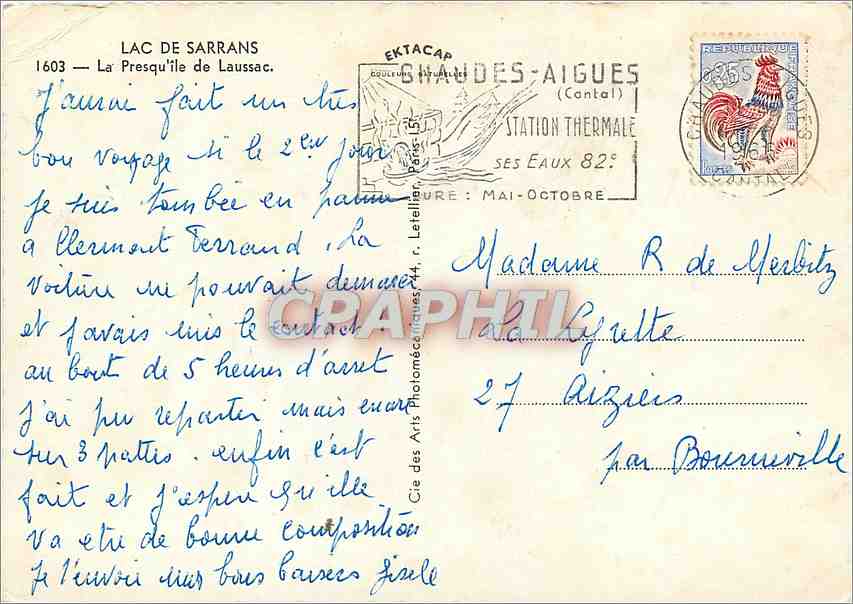 LAC DE SARRANS
1603 — La Presqu'île de Laussac.
J'aurai fait un très
bon voyage si le 2em jour
Je suis tombée en panne
a Clermont Ferrand. La
voiture ne pouvait demarer
et j'avais mis le contact.
au bout de 5 heures d'arret
J'ai pu repartir mais encore
sur 3 pattes. enfin c'est
fait et j'espere qu'ille
va etre de bonne composition
Je t'envoie mes bons baisers Gisele
EKTACAP
COULEURS NATURELLES
Cie des Arts Photomécaniques, 44, r. Letellier, Paris-15e
CHAUDES-AIGUES
(Cantal)
STATION THERMALE
SES EAUX 82°
CURE : MAI-OCTOBRE
REPUBLIQUE FRANÇAISE
0,25
CHAUDES AIGUES
CANTAL
Madame R de Merbitz
La
27 Aiziers
par Bourneville
CPAPHIL